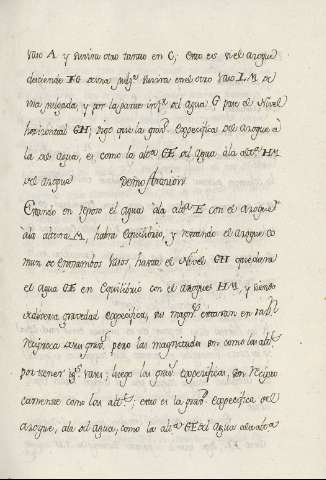 vaso A y suvira otro tanto en C; Esto es si el azogue
deciende FG de una pulg.ª suvira en el otro vaso L, M de
una pulgada, y por la parte inf.r del agua G pase el Nivel
horizontal GH; digo que la grav.d Expecifica del azogue a
la del agua, es como la alt.a GE del agua a la alt.a HM
del azogue Demostracion
Estando en reposo el agua a la alt.a E con el azogue
a la altura M, habra Equilibrio, y restando el azogue co
mun de entrambos vasos, hasta el Nivel GH quedara
el agua GE en Equilibrio con el azogue HM, y siendo
de diversa gravedad Expecifica, sus magn.s estaran en razon
Reciproca de sus grav.s pero las magnitudes son como las alt.s
por tener ig.s vases; luego las grav.s Expecificas, son Recipro
camente como las alt.s; esto es la grav.d Expecifica del
azogue, a la del agua, como la alt.a GE del agua a la alt.a